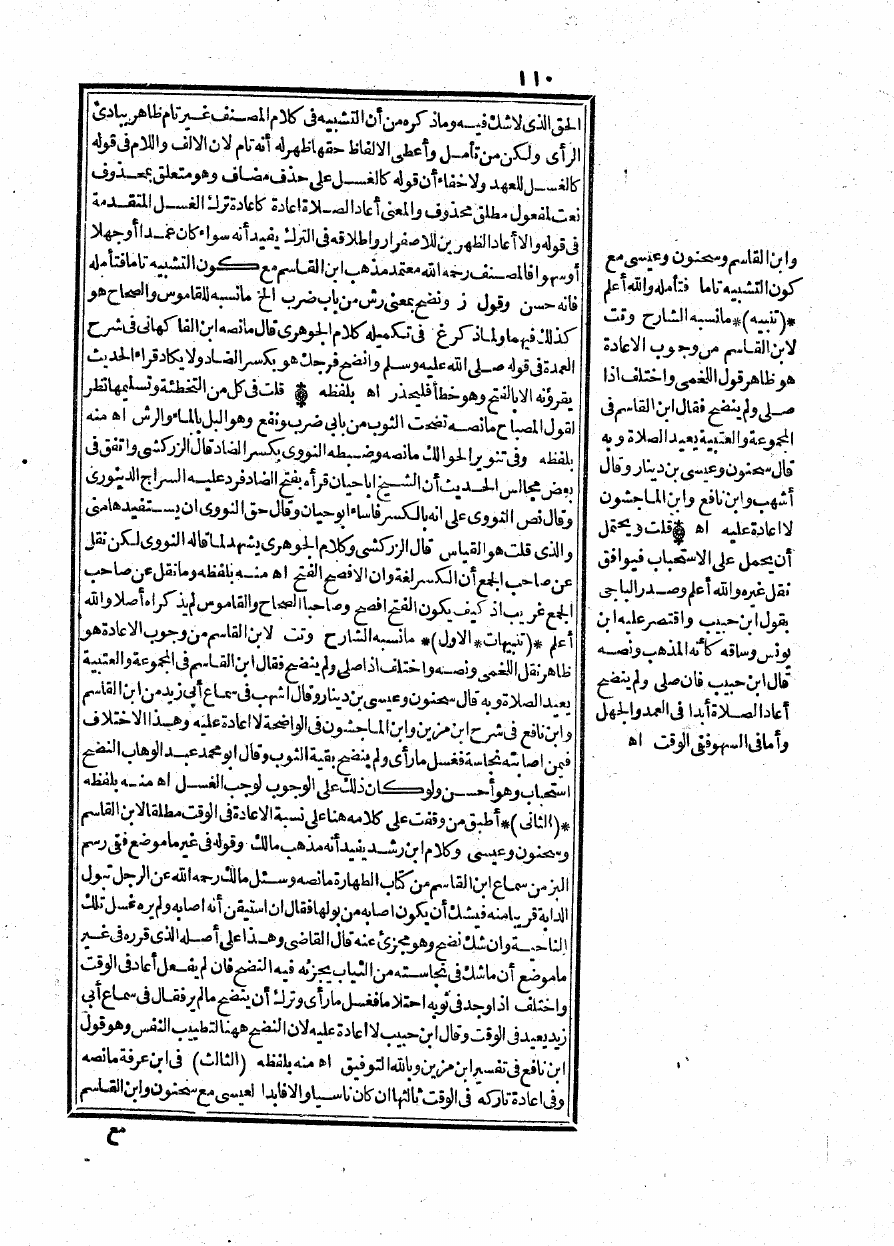 ١١٠
الحق الذي لاشك فيه وماذكره من أن التشبيه في كلام المصنف غير تام ظاهر ببادئ
الرأى ولكن من تأمل وأعطى الالفاظ حقها ظهر له أنه تام لان الالف واللام في قوله
كالغسل للعهد ولاخفاء أن قوله كالغسل على حذف مضاف وهو متعلق بمحذوف
نعت لمفعول مطلق محذوف والمعنى أعاد الصلاة اعادة كاعادة ترك الغسل المتقدمة
في قوله والا أعاد الظهرين للاصفرار واطلاقه في الترك يفيد أنه سواء كان عمدا أوجهلا
أوسهوا فالمصنف رحمه الله معتمد مذهب ابن القاسم مع كون التشبيه تاما فتأمله
فانه حسن وقول ز ونضح بمعنى رش من باب ضرب الخ مانسبه للقاموس والصحاح هو
كذلك فيهما ولماذكر غ في تكميله كلام الجوهرى قال مانصه ابن الفاكهانى في شرح
العمدة في قوله صلى الله عليه وسلم وانضح فرجك هو بكسر الضاد ولا يكاد قراء الحديث
يقرؤنه الا بالفتح وهو خطأ فليحذر اه بلفظه قلت في كل من التخطئة وتسليمها نظر
لقول المصباح مانصه نضحت الثوب من بابى ضرب ونفع وهو البل بالماء والرش اه منه
بلفظه وفي تنوير الحوالك مانصه وضبطه النووى بكسر الضاد قال الزركشى واتفق في
بعض مجالس الحديث أن الشيخ أباحيان قرأه بفتح الضاد فرد عليه السراج الدمنهورى
وقال نص النووى على انه بالكسر فاساء ابوحيان وقال حق النووى ان يستفيد هامنى
والذى قلت هو القياس قال الزركشى وكلام الجوهرى يشهد لما قاله النووى لكن نقل
عن صاحب الجمع أن الكسر لغة وان الافصح الفتح اه منه بلفظه ومانقل عن صاحب
الجمع غريب اذ كيف يكون الفتح افصح وصاحبا الصحاح والقاموس لم يذكراه أصلا والله
أعلم *(تنبيهات* الاول)* مانسبه الشارح وتت لابن القاسم من وجوب الاعادة هو
ظاهر نقل اللخمى ونصه واختلف اذا صلى ولم ينضح فقال ابن القاسم في المجموعة والعتبية
يعيد الصلاة وبه قال سحنون وعيسى بن دينار وقال اشهب في سماع أبى زيد من ابن القاسم
وابن نافع في شرح ابن مزين وابن الماجشون في الواضحة لااعادة عليه وهذا الاختلاف
فيمن اصابته نجاسة فغسل مارأى ولم ينضح بقية الثوب وقال ابومحمد عبد الوهاب النضح
استحباب وهو أحسن ولوكان ذلك على الوجوب لوجب الغسل اه منه بلفظه
*(الثانى)* أطبق من وقفت على كلامه هنا على نسبة الاعادة في الوقت مطلقا لابن القاسم
وسحنون وعيسى وكلام ابن رشد يفيد أنه مذهب مالك وقوله في غير ماموضع ففى رسم
البز من سماع ابن القاسم من كتاب الطهارة مانصه وسئل مالك رحمه الله عن الرجل تبول
الدابة قريبا منه فيشك أن يكون اصابه من بولها فقال ان استيقن أنه اصابه ولم يره غسل تلك
الناحية وان شك نضح وهو مجزئ عنه قال القاضى وهذا على أصله الذى قرره في غير
ماموضع أن ماشك في نجاسته من الثياب يجزئه فيه النضح فان لم يفعل أعاد في الوقت
واختلف اذا وجد في ثوبه احتلاما فغسل مارأى وترك أن ينضح مالم ير فقال في سماع أبى
زيد يعيد في الوقت وقال ابن حبيب لااعادة عليه لان النضح ههنا لتطييب النفس وهو قول
ابن نافع في تفسير ابن مزين وبالله التوفيق اه منه بلفظه (الثالث) في ابن عرفة مانصه
وفى اعادة تاركه في الوقت ثالثها ان كان ناسيا والا فابدا لعيسى مع سحنون وابن القاسم
مع
وابن القاسم وسحنون وعيسى مع
كون التشبيه تاما فتأمله والله أعلم
*(تنبيه)* مانسبه الشارح وتت
لابن القاسم من وجوب الاعادة
هو ظاهر قول اللخمى واختلف اذا
صلى ولم ينضح فقال ابن القاسم في
المجموعة والعتبية يعيد الصلاة وبه
قال سحنون وعيسى بن دينار وقال
أشهب وابن نافع وابن الماجشون
لااعادة عليه اه قلت ويحتمل
أن يحمل على الاستحباب فيوافق
نقل غيره والله أعلم وصدر الباجى
بقول ابن حبيب واقتصر عليه ابن
يونس وساقه كأنه المذهب ونصه
قال ابن حبيب فان صلى ولم ينضح
أعاد الصلاة أبدا في العمد والجهل
وأمافى السهو ففى الوقت اه